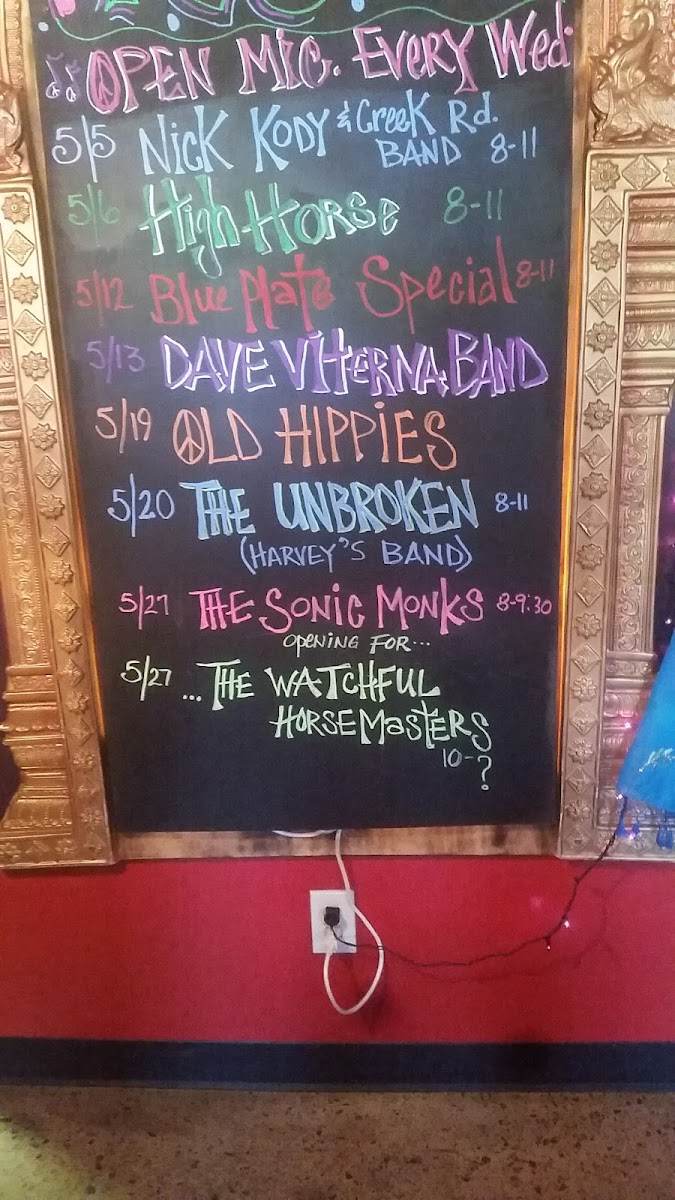 OPEN MIC. EVERY WED.
5/5 NICK KODY & CREEK RD. BAND 8-11
5/6 HIGH HORSE 8-11
5/12 Blue Plate Special 8-11
5/13 DAVE VITERNA BAND
5/19 OLD HIPPIES
5/20 THE UNBROKEN 8-11
(HARVEY'S BAND)
5/27 THE SONIC MONKS 8-9:30
OPENING FOR...
5/27 ...THE WATCHFUL
HORSEMASTERS
10-?